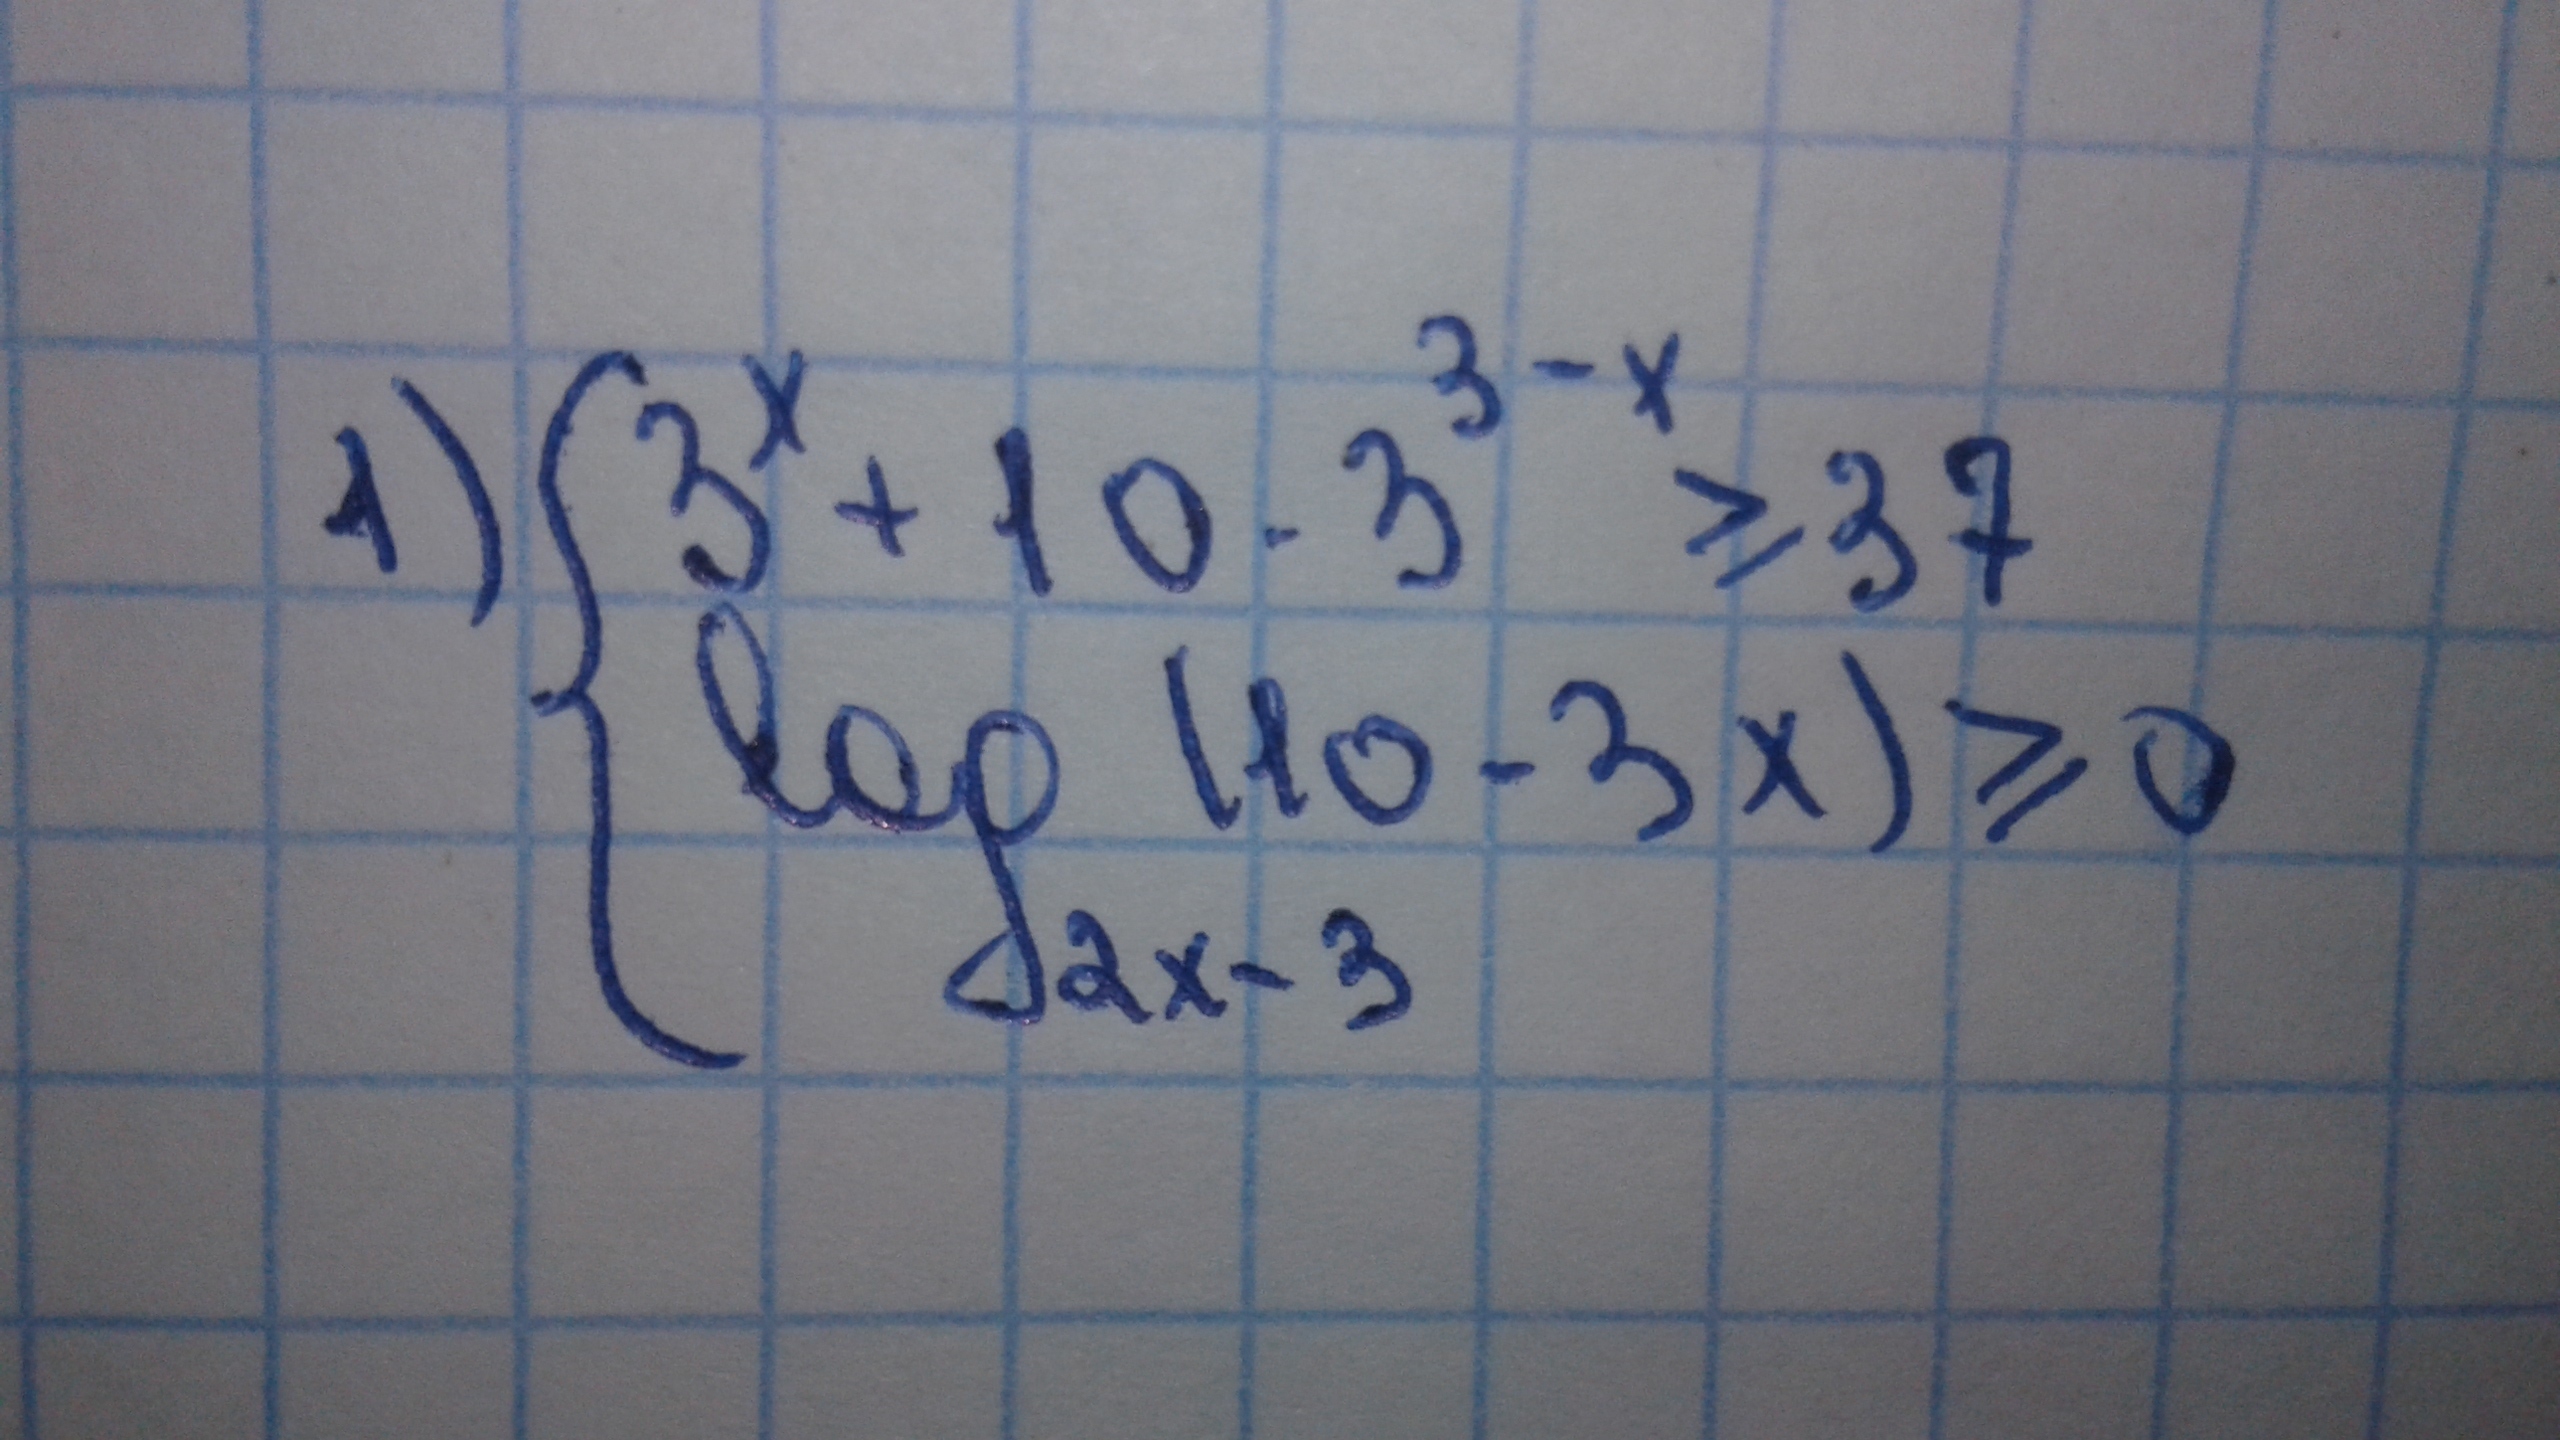 1) { 3^x + 10 · 3^{3-x} ≥ 37
log_{2x-3} (10 - 3x) ≥ 0